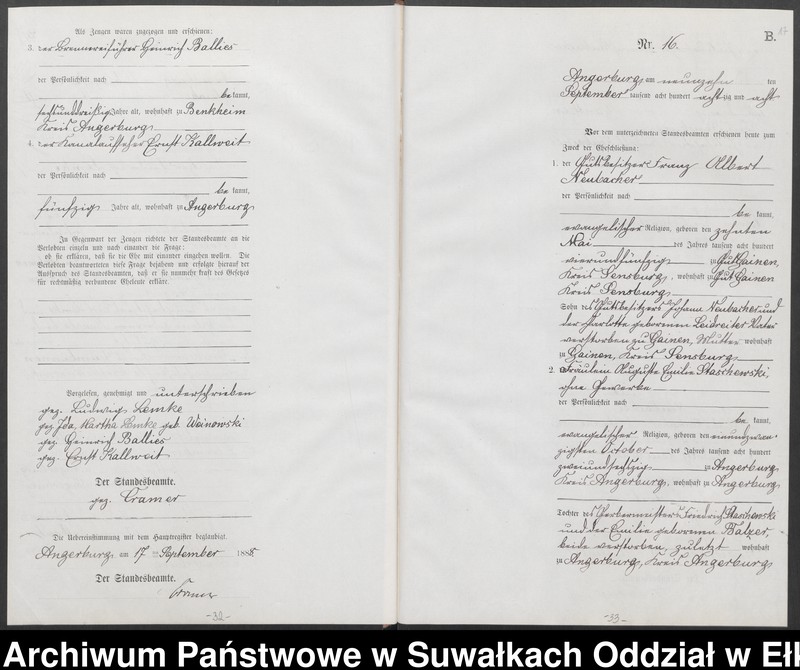 Als Zeugen waren zugezogen und erschienen:
3. der Brennereiführer Heinrich Ballies
der Persönlichkeit nach
be kannt,
sechsunddreißig Jahre alt, wohnhaft zu Benkheim
Kreis Angerburg
4. der Kanalaufseher Ernst Kallweit
der Persönlichkeit nach
be kannt,
fünfzig Jahre alt, wohnhaft zu Angerburg
In Gegenwart der Zeugen richtete der Standesbeamte an die
Verlobten einzeln und nach einander die Frage:
ob sie erklären, daß sie die Ehe mit einander eingehen wollen. Die
Verlobten beantworteten diese Frage bejahend und erfolgte hierauf der
Ausspruch des Standesbeamten, daß er sie nunmehr kraft des Gesetzes
für rechtmäßig verbundene Eheleute erkläre.
Vorgelesen, genehmigt und unterschrieben
gez. Ludwig Lemke
gez. Ida Martha Lemke geb. Woinowski
gez. Heinrich Ballies
gez. Ernst Kallweit
Der Standesbeamte.
gez. Cramer
Die Uebereinstimmung mit dem Hauptregister beglaubigt.
Angerburg am 17 ten September 1888
Der Standesbeamte.
Cramer
-32-
B.
17
Nr. 16.
Angerburg am neunzehn ten
September tausend acht hundert achtzig und acht
Vor dem unterzeichneten Standesbeamten erschienen heute zum
Zweck der Eheschließung:
1. der Gutsbesitzer Franz Albert
Neubacher
der Persönlichkeit nach
be kannt,
evangelischer Religion, geboren den zehnten
Mai des Jahres tausend acht hundert
vierundfünfzig zu Gut Gainen,
Kreis Sensburg, wohnhaft zu Gut Gainen
Kreis Sensburg
Sohn des Gutsbesitzers Johann Neubacher und
der Charlotte geborenen Leidreiter Vater
verstorben zu Gainen, Mutter wohnhaft
zu Gainen, Kreis Sensburg
2. Fräulein Auguste Emilie Staschewski,
ohne Gewerbe
der Persönlichkeit nach
be kannt,
evangelischer Religion, geboren den einundzwan-
zigsten October des Jahres tausend acht hundert
zweiundsechzig zu Angerburg
Kreis Angerburg, wohnhaft zu Angerburg
Tochter des Gerbermeisters Friedrich Staschewski
und der Emilie geborenen Balzer,
beide verstorben, zuletzt wohnhaft
zu Angerburg, Kreis Angerburg
-33-
Archiwum Państwowe w Suwałkach Oddział w Eł